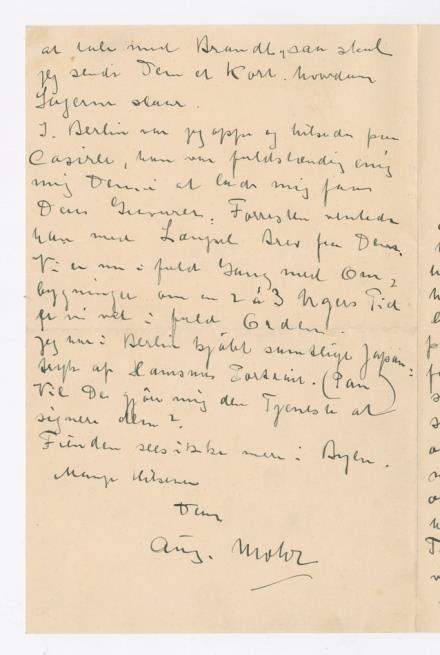 at tale med Brandt, saa skal
jeg sende Dem et Kort. hvordan
Sagerne staar.
I. Berlin var jeg oppe og hilsede paa
Casirer, han var fuldstændig enig
mig Dem i at lade mig faae
Deres Gravurer. Forresten ventede
han med Længsel Brev fra Dem.
Vi er nu i fuld Gang med Om-
bygninger om en 2 à 3 Ugers Tid
er vi vel i fuld Orden.
Jeg har i Berlin kjøbt samtlige Japan:
tryk af Hamsuns Portrait. (Pan)
Vil De gjøre mig den Tjeneste at
signere dem?
Fienden sees ikke mere i Byen.
Mange Hilsener
Deres
Aug. Mohr